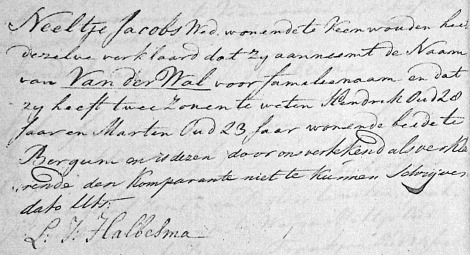 Neeltje Jacobs Wed. wonende te Keenwouden hee
dezelve verklaard dat zy aanneemt de Naam
van Van Der Wal voor familienaam en dat
zy heeft twee Zonen te weten Hendrik Oud 28
Jaar en Marten Oud 23 Jaar wonende beide te
Bergum en is dezen door ons verkkend als verkla
rende den komparante niet te kunnen Schrijven
dato Uts.
L: J: Halbelma